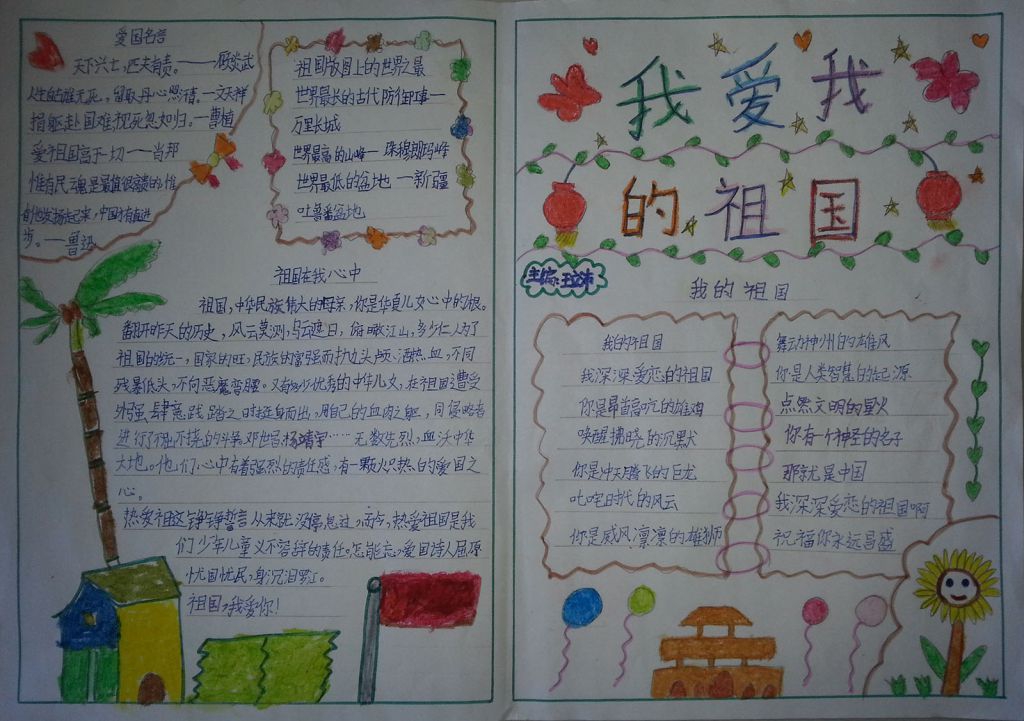 爱国名言
天下兴亡,匹夫有责。——顾炎武
人生自古谁无死,留取丹心照汗青。—文天祥
捐躯赴国难,视死忽如归。—曹植
爱祖国高于一切——肖邦
惟有民魂是最值得宝贵的,惟
有他发扬起来,中国才有真进
步。——鲁迅
祖国版图上的世界之最
世界最长的古代防御工事—
万里长城
世界最高的山峰—珠穆朗玛峰
世界最低的盆地—新疆
吐鲁番盆地
祖国在我心中
祖国,中华民族伟大的母亲,你是华夏儿女心中的根。
翻开昨天的历史,风云莫测,乌云遮日,俯瞰江山,多少仁人为了
祖国的统一,国家的旺,民族的富强而抛头颅、洒热血,不同
残暴低头,不向恶魔弯腰。又有多少优秀的中华儿女,在祖国遭受
外强肆意践踏之时挺身而出,用自己的血肉之躯,同侵略者
进行了不屈不挠的斗争。邓世昌、杨靖宇……无数先烈,血沃中华
大地。他们心中有着强烈的责任感,有一颗火炽热的爱国之
心。
热爱祖这铮铮誓言从来就没停息过,而今,热爱祖国是我
们少年儿童义不容辞的责任。怎能忘,爱国诗人屈原
忧国忧民,身沉汨罗江。
祖国,我爱你!
我爱我
的祖国
主编:王
我的祖国
我的祖国
我深深爱恋的祖国
你是昂首高吭的雄鸡
唤醒拂晓的沉默
你是冲天腾飞的巨龙
叱咤时代的风云
你是威风凛凛的雄狮
舞动神州的雄风
你是人类智慧的起源
点燃文明的星火
你有一个神圣的名子
那就是中国
我深深爱恋的祖国啊
祝福你永远昌盛